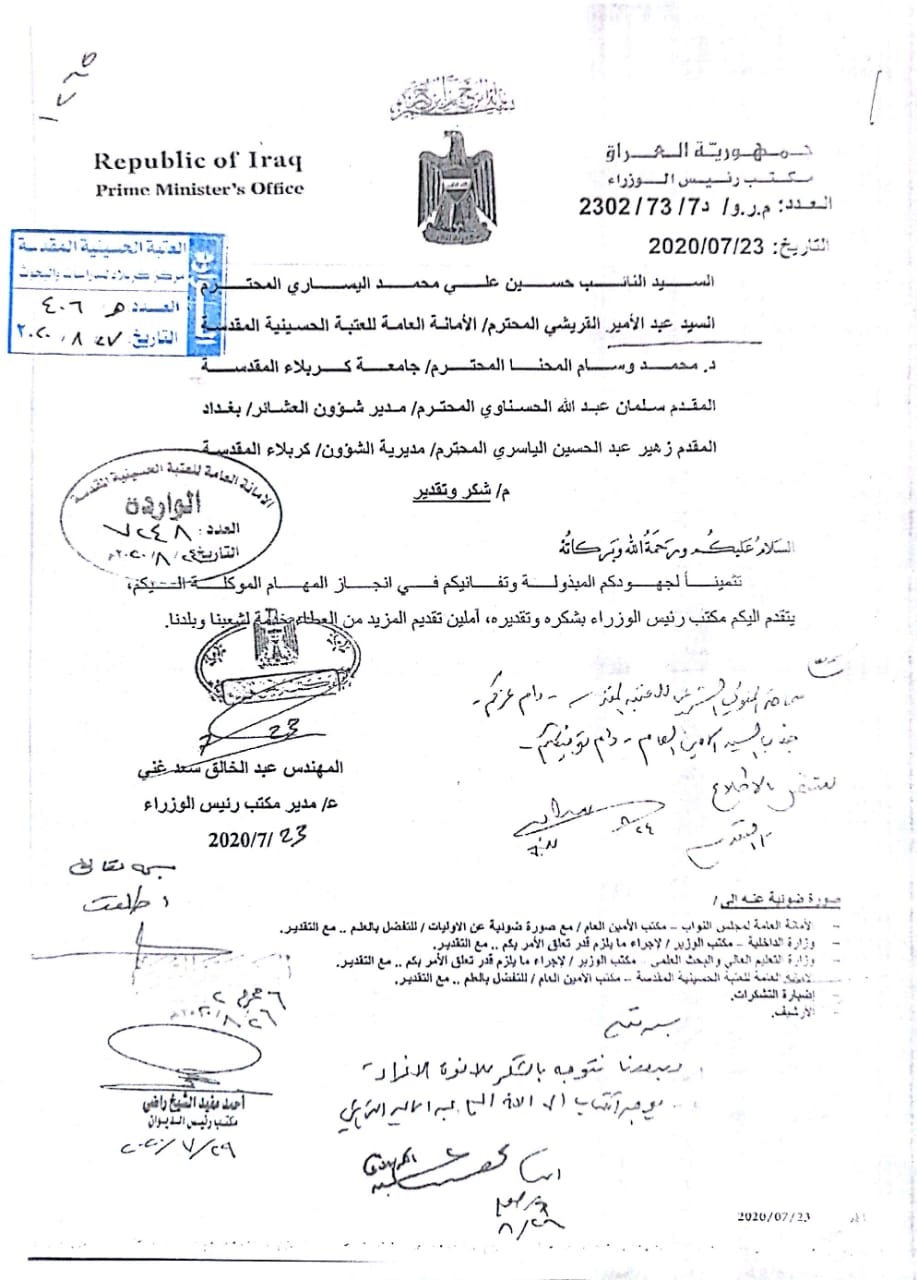 بسم الله الرحمن الرحيم
Republic of Iraq
Prime Minister's Office
جمهورية العراق
مكتب رئيس الوزراء
العدد: م.ر.و/ د7/ 73/ 2302
التاريخ: 2020/07/23
العتبة الحسينية المقدسة
مركز كربلاء للدراسات والبحوث
العدد ه ٤٠٦
التاريخ: ٢٧ ٨ ٢٠٢٠
السيد النائب حسين علي محمد اليساري المحترم
السيد عبد الأمير القريشي المحترم/ الأمانة العامة للعتبة الحسينية المقدسة
د. محمد وسام المحنا المحترم/ جامعة كربلاء المقدسة
المقدم سلمان عبد الله الحسناوي المحترم/ مدير شؤون العشائر/ بغداد
المقدم زهير عبد الحسين الياسري المحترم/ مديرية الشؤون/ كربلاء المقدسة
الامانة العامة للعتبة الحسينية المقدسة
الواردة
العدد: ٧٢٤٨
التاريخ ٢٤/ ٨/ ٢٠٢٠م
م/ شكر وتقدير
السلام عليكم ورحمة الله وبركاته
تثميناً لجهودكم المبذولة وتفانيكم في انجاز المهام الموكلة اليكم،
يتقدم اليكم مكتب رئيس الوزراء بشكره وتقديره، آملين تقديم المزيد من العطاء خدمة لشعبنا وبلدنا.
23
7
المهندس عبد الخالق سعد غني
ع/ مدير مكتب رئيس الوزراء
2020/7/ 23
سماحة المتولي الشرعي للعتبة المقدسة - دام عزكم -
جناب السيد الامين العام - دام توفيقكم -
للتفضل بالاطلاع
مع التقدير
٨/٢٤
بسمه تعالى
اطلعت
صورة ضوئية عنه الى/
- الأمانة العامة لمجلس النواب – مكتب الأمين العام / مع صورة ضوئية عن الاوليات / للتفضل بالعلم .. مع التقدير.
- وزارة الداخلية – مكتب الوزير / لاجراء ما يلزم قدر تعلق الأمر بكم .. مع التقدير.
- وزارة التعليم العالي والبحث العلمي – مكتب الوزير / لاجراء ما يلزم قدر تعلق الأمر بكم .. مع التقدير.
- الامانة العامة للعتبة الحسينية المقدسة – مكتب الأمين العام / للتفضل بالعلم .. مع التقدير.
- إضبارة التشكرات.
- الأرشيف.
٦ محرم
٢٦/ ٨/ ٢٠٢٠م
أحمد مفيد الشيخ راضي
مكتب رئيس الديوان
٢٠٢٠/٧/٢٩
بسمه تعالى
وبدورنا نتوجه بالشكر للاخوة الافراد
٨/٢٦
2020/07/23